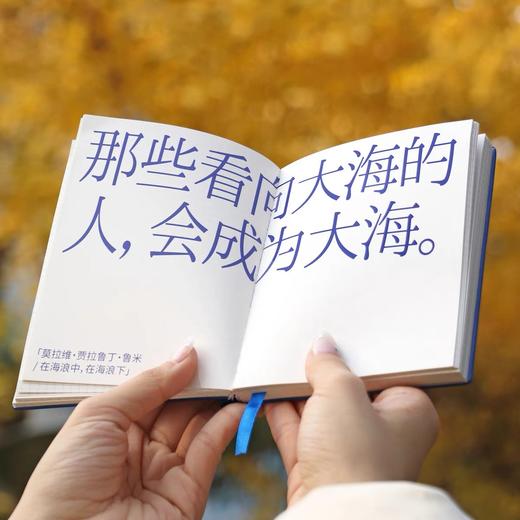 那些看向大海的
人，会成为大海。
「莫拉维·贾拉鲁丁·鲁米
/在海浪中，在海浪下」